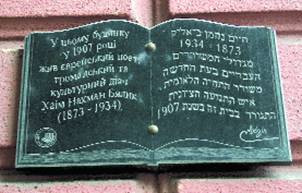 У цьому будинку
у 1907 році
жив єврейський поет,
громадський та
культурний діяч
Хаїм Нахман Бялик
(1873 - 1934)
חיים נחמן ביאליק
1934 - 1873
מגדולי המשוררים
העבריים בעת החדשה
משורר התחיה הלאומית
איש התנועה הציונית
התגורר בבית זה בשנת 1907